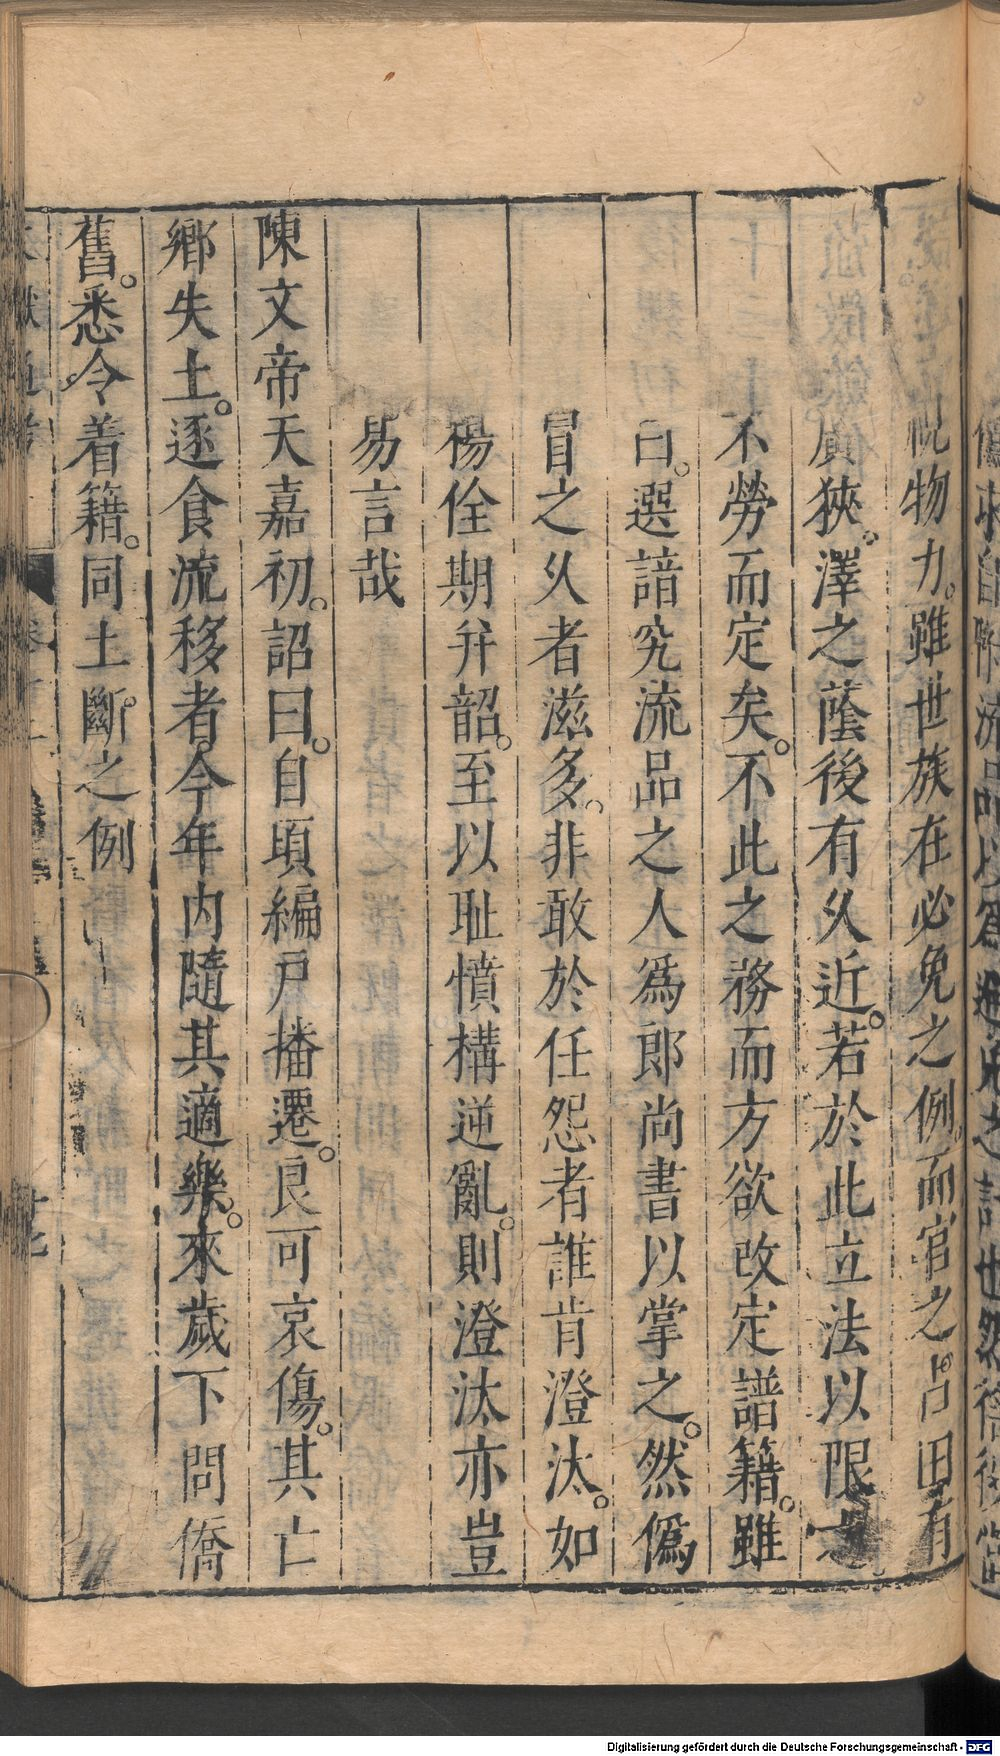 視物力。雖世族在必免之例。而官之占田有
廣狹。澤之蔭後有久近。若於此立法以限之
不勞而定矣。不此之務而方欲改定譜籍。雖
曰。選諳究流品之人爲郎尚書以掌之。然僞
冒之久者滋多。非敢於任怨者誰肯澄汰。如
楊佺期并韶。至以耻憤構逆亂。則澄汰亦豈
易言哉
陳文帝天嘉初。詔曰。自頃編戶播遷。良可哀傷。其亡
鄉失土。逐食流移者。今年內隨其適樂。來歲下問僑
舊。悉令着籍。同土斷之例
Digitalisierung gefördert durch die Deutsche Forschungsgemeinschaft - DFG